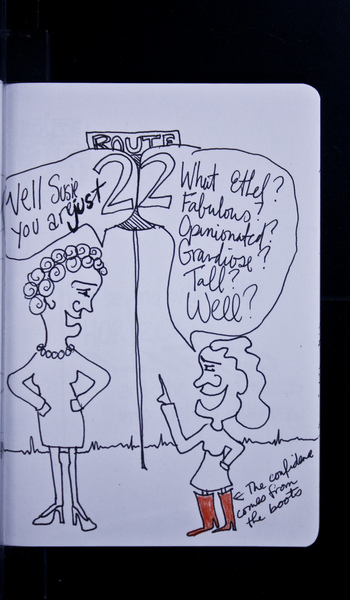 ROUTE
22
Well Susie
you are just
What Ethel?
Fabulous?
Opinionated?
Grandiose?
Tall?
Well?
← The confidence
comes from
the boots